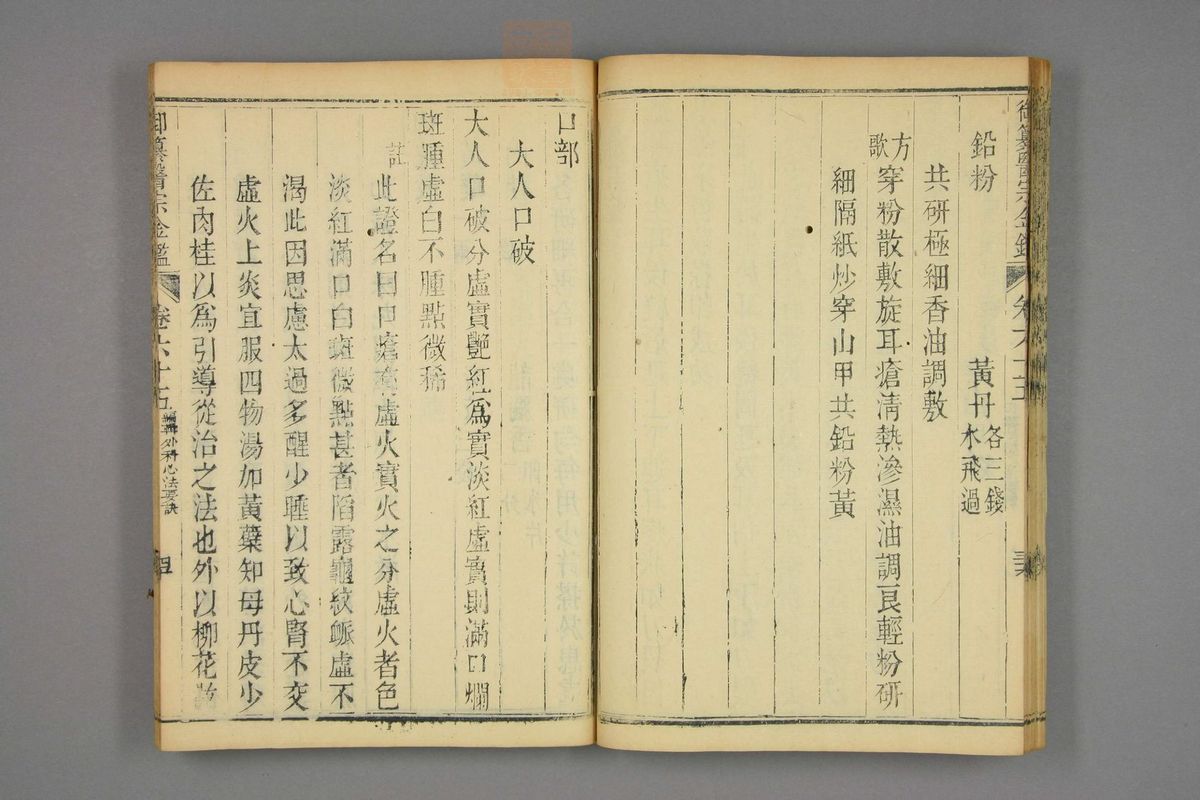 鉛粉 黃丹水飛過 各三錢
共研極細香油調敷
方歌 穿粉散敷旋耳瘡清熱滲濕油調良輕粉研
細隔紙炒穿山甲共鉛粉黃
御纂醫宗金鑑 卷六十五
口部
大人口破
大人口破分虛實艷紅為實淡紅虛實則滿口爛
斑腫虛白不腫點微稀
註 此證名曰口瘡有虛火實火之分虛火者色
淡紅滿口白斑微點甚者陷露龜紋脈虛不
渴此因思慮太過多醒少睡以致心腎不交
虛火上炎宜服四物湯加黃蘗知母丹皮少
佐肉桂以為引導從治之法也外以柳花散
御纂醫宗金鑑 卷六十五 編輯外科心法要訣